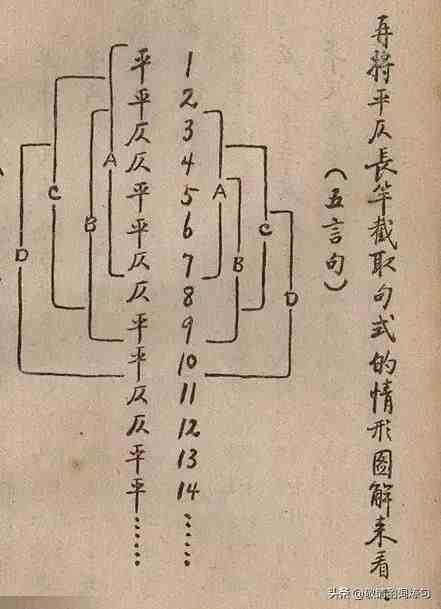 再將平仄長竿截取句式的情形圖解來看:
(五言句)
平 1
平 2
仄 3
A 仄 4
C 平 5 A
B 平 6 C
D 仄 7 B
仄 8 D
平 9
平 10
仄 11
仄 12
平 13
平 14
…… ……
头条 @敬晴剂闻奈句